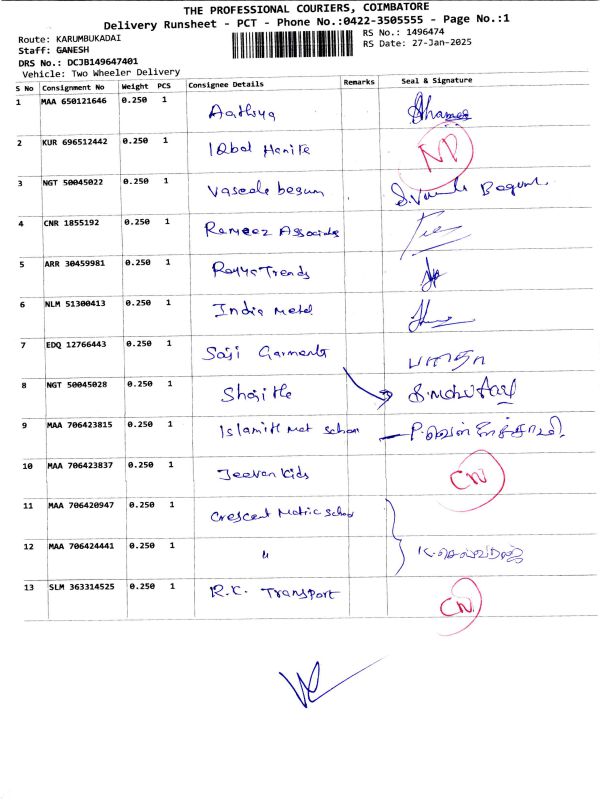 THE PROFESSIONAL COURIERS, COIMBATORE
Delivery Runsheet - PCT - Phone No.:0422-3505555 - Page No.:1
Route: KARUMBUKADAI
Staff: GANESH
DRS No.: DCJB149647401
Vehicle: Two Wheeler Delivery
RS No.: 1496474
RS Date: 27-Jan-2025
S No Consignment No Weight PCS Consignee Details Remarks Seal & Signature
1 MAA 650121646 0.250 1 Aathiya
2 KUR 696512442 0.250 1 IQbal Hanife ND
3 NGT 50045022 0.250 1 Vaseela begum Begum
4 CNR 1855192 0.250 1 Rameez Associates
5 ARR 30459981 0.250 1 Trends
6 NLM 51300413 0.250 1 India Metal
7 EDQ 12766443 0.250 1 Saji Garments
8 NGT 50045028 0.250 1
9 MAA 706423815 0.250 1
10 MAA 706423837 0.250 1 Jeevan Kids CN
11 MAA 706420947 0.250 1 Crescent Matric School
12 MAA 706424441 0.250 1 "
13 SLM 363314525 0.250 1 R.K. Transport CN